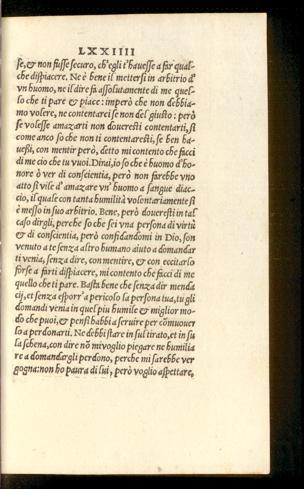 LXXIIII
se, & non fusse securo, ch'egli t'hauesse a far qual-
che dispiacere. Ne è bene il mettersi in arbitrio d'
vn huomo, ne il dire fa assolutamente di me quel-
lo che ti pare & piace: imperò che non debbia-
mo volere, ne contentarci se non del giusto: però
se volesse amazarti non doueresti contentarti, si
come anco so che non ti contentaresti, se ben ha-
uessi, con mentir però, detto mi contento che facci
di me cio che tu vuoi. Dirai, io so che è huomo d'ho-
nore ò ver di conscientia, però non farebbe vno
atto si vile d'amazare vn'huomo a sangue diac-
cio, il quale con tanta humilità volontariamente si
è messo in suo arbitrio. Bene, però doueresti in tal
caso dirgli, perche so che sei vna persona di virtù
& di conscientia, però confidandomi in Dio, son
venuto a te senza altro humano aiuto a domandar
ti venia, senza dire, con mentire, & con eccitarlo
forse a farti dispiacere, mi contento che facci di me
quello che ti pare. Basta bene che senza dir menda
cij, et senza esporr'a pericolo la persona tua, tu gli
domandi venia in quel piu humile & miglior mo-
do che puoi, & pensi habbi a seruire per cōmuouer
lo a perdonarti. Ne debbi stare in sul tirato, et in su
la schena, con dire nō mi voglio piegare ne humilia
re a domandargli perdono, perche mi sarebbe ver
gogna: non ho paura di lui, però voglio aspettare,